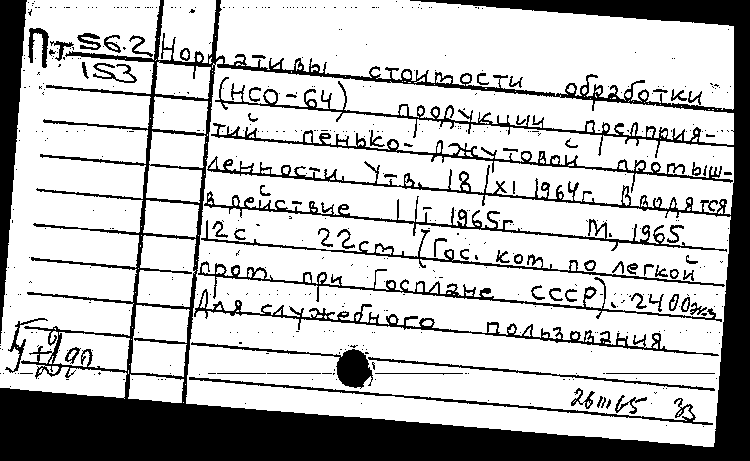 Пт 56.2
153
Нормативы стоимости обработки
(НСО-64) продукции предприя-
тий пенько-джутовой промыш-
ленности. Утв. 18/XI 1964г. Вводятся
в действие 1/I 1965г. М., 1965.
12с. 22см. (Гос. ком. по легкой
пром. при Госплане СССР). 2400экз
Для служебного пользования.
26III65